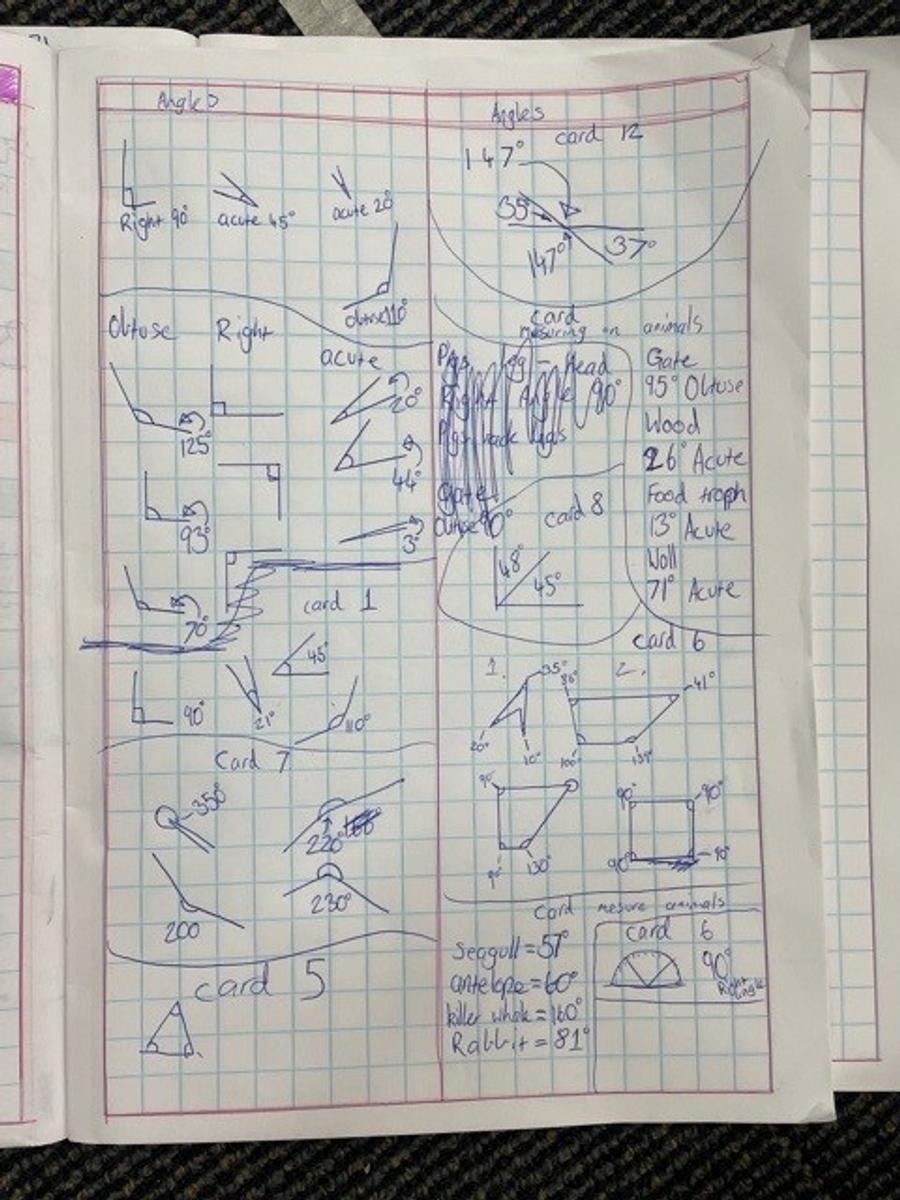 Angles
Right 90°
acute 45°
acute 20°
obtuse 110°
Obtuse
Right
acute
125°
20°
93°
44°
70°
3°
card 1
45°
90°
21°
110°
Card 7
350°
220°
200
230°
card 5
Angles
card 12
147°
35°
147°
37°
card
mesuring on animals
Leg - Head
Right Angle 90°
Gate
Obtuse 90°
Gate
95° Obtuse
Wood
26° Acute
Food troph
13° Acute
Woll
71° Acute
card 8
48°
45°
card 6
1.
35°
20°
10°
2.
86°
41°
100°
139°
90°
130°
90°
90°
90°
90°
Card mesure animals
Seagull = 57°
antelope = 60°
killer whale = 160°
Rabbit = 81°
card 6
90°
Right angle